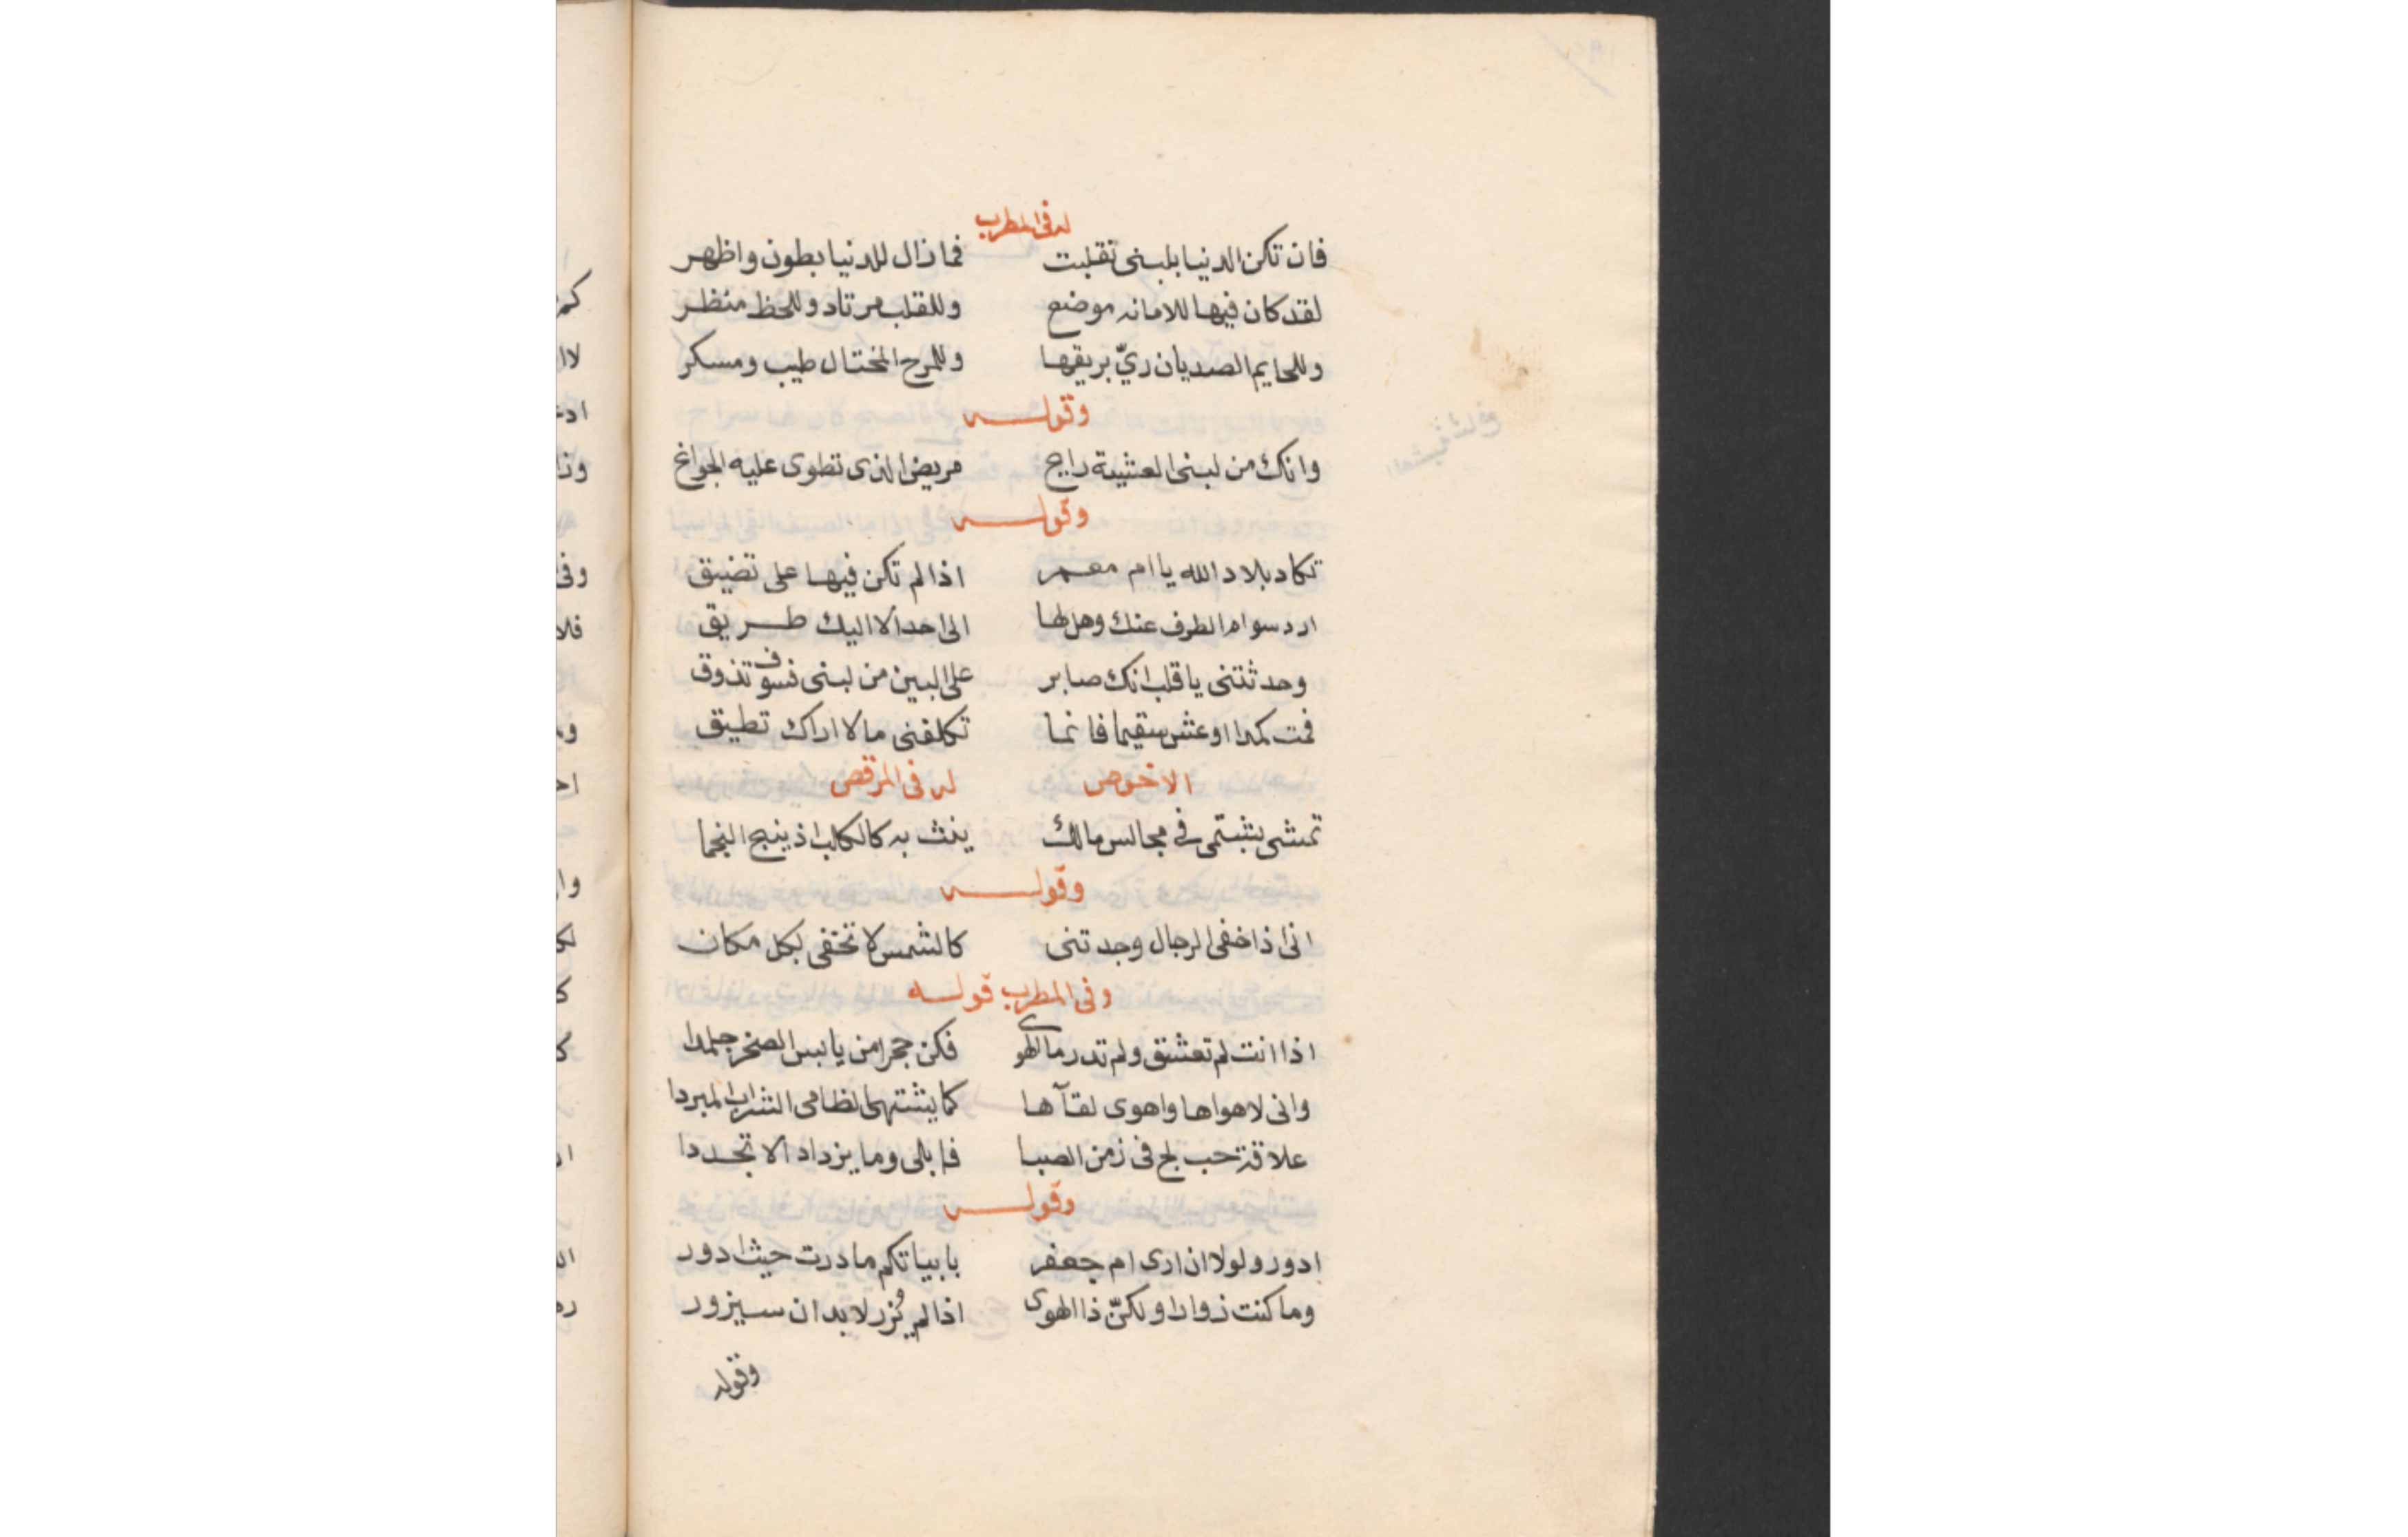 له فى المطرب
فان تكن الدنيا بلبنى تقلبت فما زال للدنيا بطون واظهر
لقد كان فيها للامانه موضع وللقلب مرتاد وللحظ منظر
وللحايم الصديان ريّ بريقها وللمرح المختال طيب ومسكر
وقوله
وانك من لبنى العشية رايح مريض الذى تطوى عليه الجوانح
وقوله
تكاد بلاد الله يا ام معمر اذا لم تكن فيها على تضيق
ارد سوام الطرف عنك وهل لها الى احد الا اليك طريق
وحدثتنى يا قلب انك صابر على البين من لبنى فسوف تذوق
فمت كمدا او عش سقيما فانما تكلفنى مالا اراك تطيق
الاخوص له فى المرقص
تمشى بشتمى فى مجالس مالك به كالكلب اذ ينبح النجما
وقوله
انى اذا خفى الرجال وجدتنى كالشمس لا تخفى بكل مكان
وفى المطرب قوله
اذا انت لم تعشق ولم تدر ما الهوى فكن حجرا من يابس الصخر جلمدا
وانى لاهواها واهوى لقآها كما يشتهى الظامى الشراب المبردا
علاقة حب لج فى زمن الصبا فابلى وما يزداد الا تجددا
وقوله
ادور ولولا ان ارى ام جعفر بابياتكم ما درت حيث ادور
وما كنت زوارا ولكنّ ذا الهوى اذا لم يزر لا بد ان سيزور
وقوله